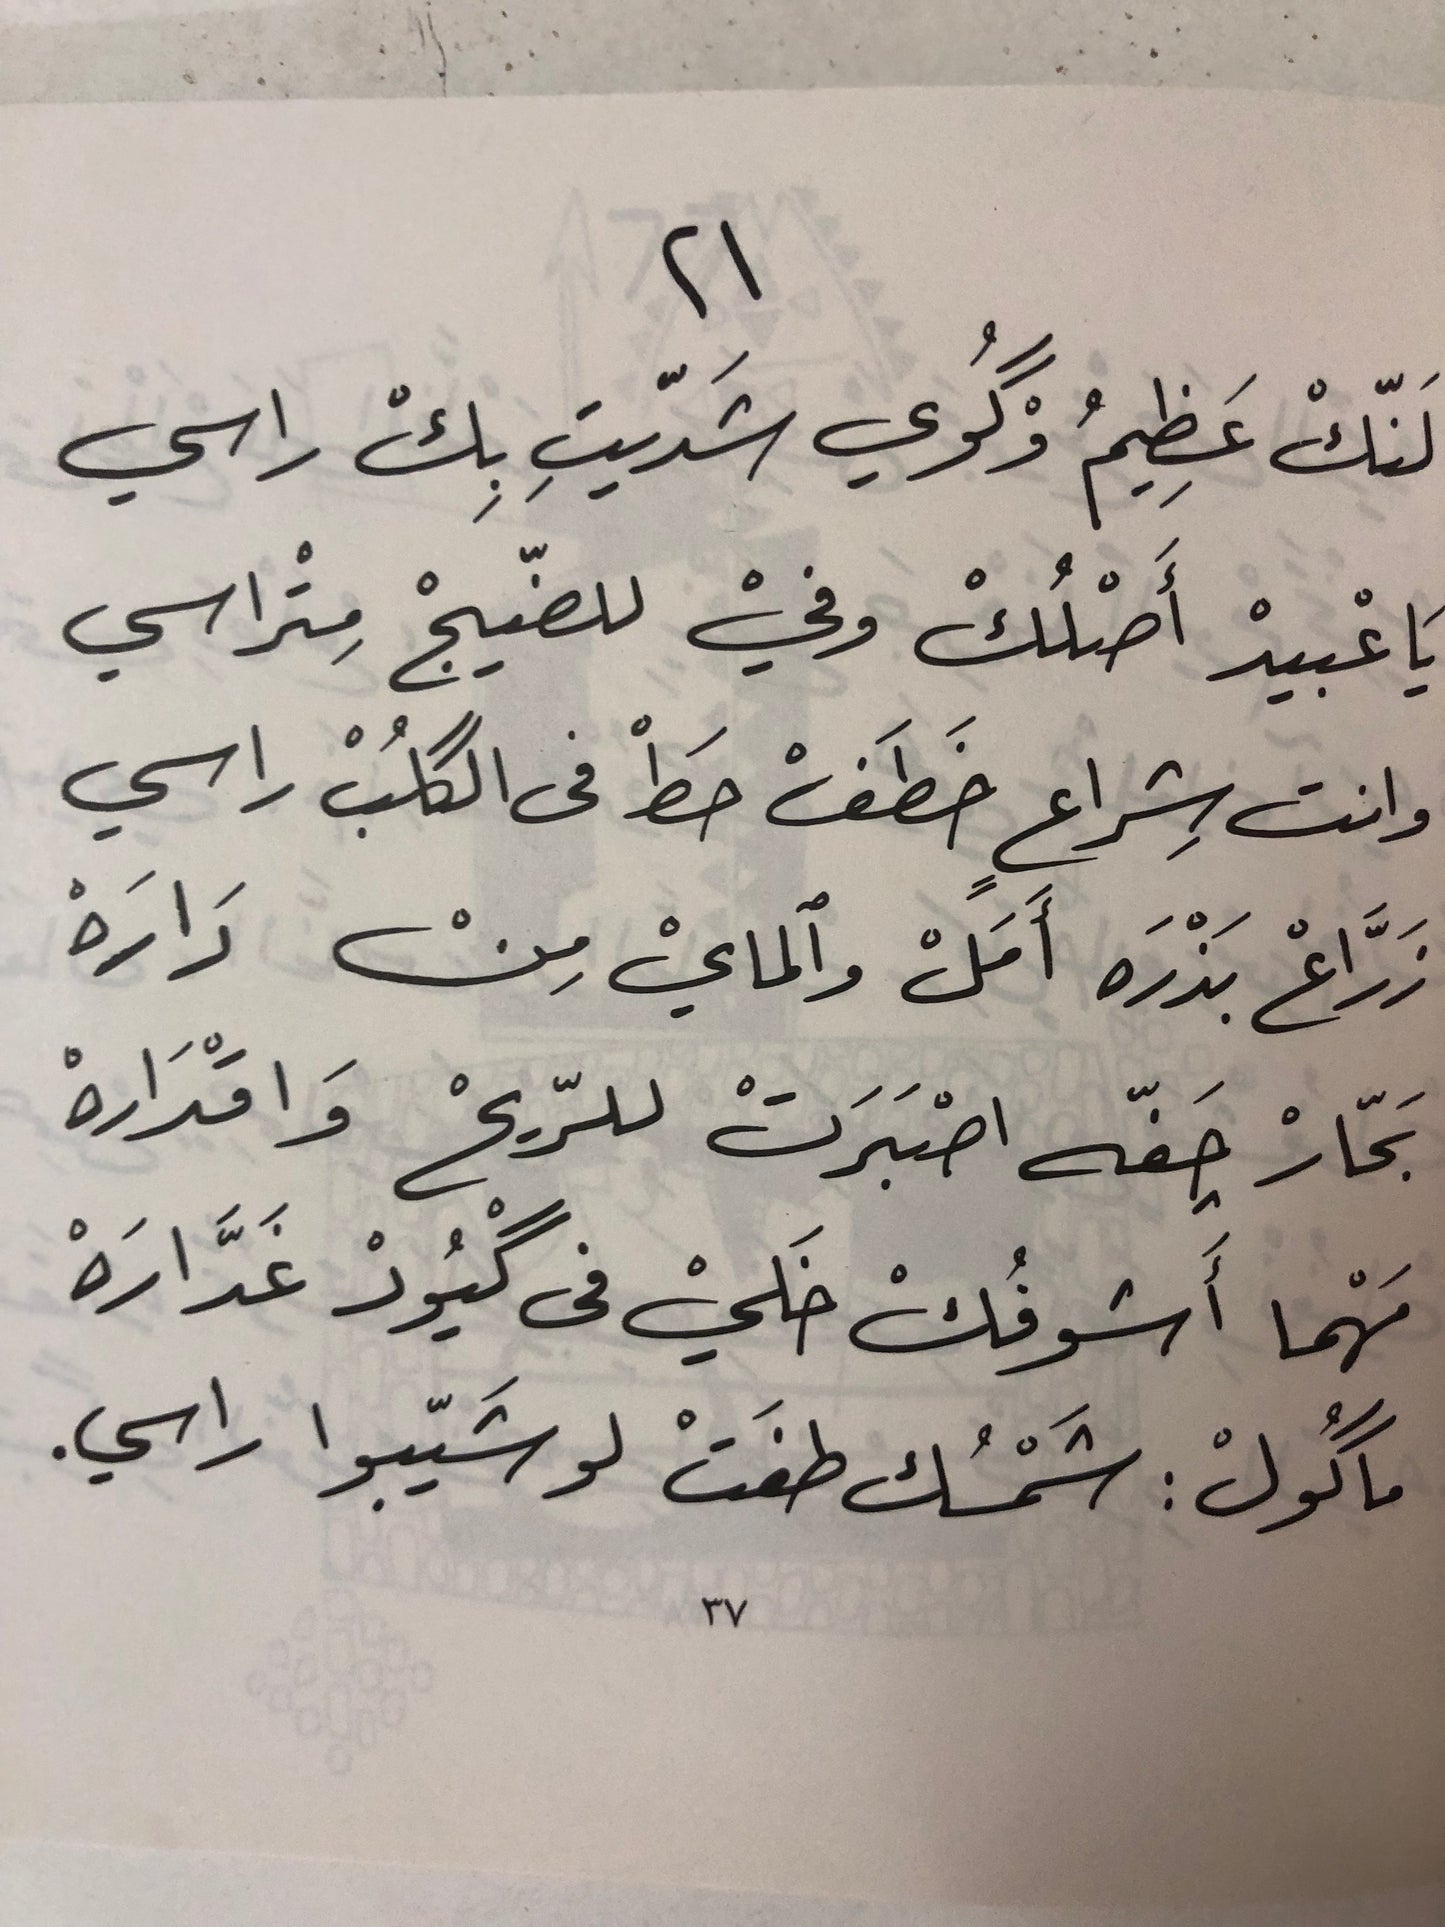 ٢١
لَنّكْ عَظِيمُ وْگُوي شَدّيتِ بِكْ راسي
يَا عْبيدْ أَصْلُكْ وفيْ للضّيجْ مِتْراسي
وانت شِراعٍ خَطَفْ حَطْ في الگلُبْ راسي
زَرَّاعْ بَذْرَه أَمَلْ وٱلمايْ مِنْ دَارَهْ
بَحّارْ چَفّه اصْبَرَتْ للرّيحْ وَاقْدَارهْ
مَهْما أَشوفُكْ خَليْ في گْيُودْ غَدَّارَهْ
ماگُولْ : شَمْسُك طفَتْ لو شَيّبوا راسي.
٣٧